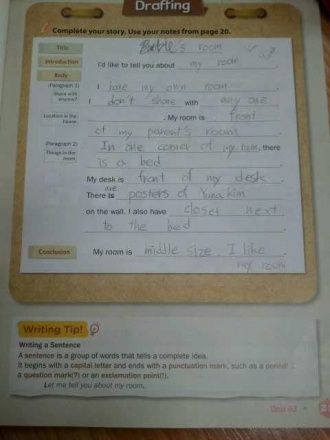 Drafting
Complete your story. Use your notes from page 20.
Title
's room
Introduction
I'd like to tell you about my room
Body
(Paragraph 1)
Share with anyone?
I have my own room
I don't share with any one
Location in the house
. My room is front
of my parent's room
(Paragraph 2)
Things in the room
In one corner of my room, there
is a bed
My desk is front of my desk
There is are posters of Yuna kim
on the wall. I also have closet next
to the bed
Conclusion
My room is middle size. I like
my room
Writing Tip!
Writing a Sentence
A sentence is a group of words that tells a complete idea.
It begins with a capital letter and ends with a punctuation mark, such as a period .
a question mark(?) or an exclamation point(!).
Let me tell you about my room.
Unit